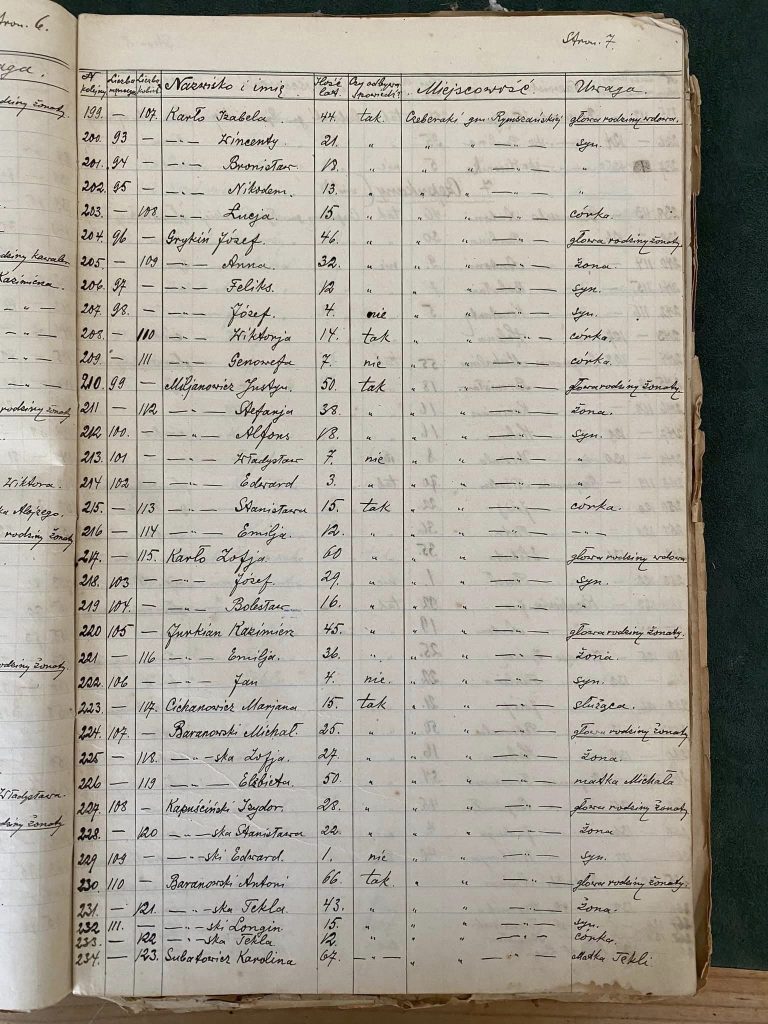 Stron. 6.
Stron. 7.
N kolejny Liczba męzczyzn Liczba kobiet Nazwisko i imię Ilość lat. Czy odbywa spowiedź? Miejscowość Uwaga.
199. — 107. Karło Izabela 44. tak. Czeberaki gm. Rymszańskiej głowa rodziny wdowa.
200. 93 — —"— Wincenty 21. " " " —"— syn.
201. 94 — —"— Bronisław 18. " " " —"— "
202. 95 — —"— Nikodem. 13. " " " —"— "
203. — 108. —"— Łucja 15. " " " —"— córka.
204. 96 — Grykiń Józef. 46. " " " —"— głowa rodziny żonaty.
205. — 109 —"— Anna. 32. " " " —"— żona.
206. 97 — —"— Feliks. 12 " " " —"— syn.
207. 98. — —"— Józef. 4. nie " " —"— syn.
208. — 110 —"— Wiktorja 14. tak " " —"— córka.
209. — 111 —"— Genowefa 7. nie " " —"— córka.
210. 99 — Miljanowicz Justyn. 50. tak " " —"— głowa rodziny żonaty
211 — 112 —"— Stefanja 38. " " " —"— żona.
212. 100. — —"— Alfons 18. " " " —"— syn.
213. 101 — —"— Władysław 7. nie " " —"— "
214 102 — —"— Edward 3. " " " —"— "
215. — 113 —"— Stanisława 15. tak " " —"— córka.
216 — 114 —"— Emilja. 12. " " " —"— —"—
217. — 115. Karło Zofja 60 " " " —"— głowa rodziny wdowa
218. 103 — —"— Józef. 29. " " " —"— syn.
219 104. — —"— Bolesław 16. " " " —"— "
220 105 — Jurkian Kazimierz 45. " " " —"— głowa rodziny żonaty.
221. — 116 —"— Emilja. 36. " " " —"— żona.
222. 106 — —"— Jan 4. nie. " " —"— syn.
223. — 117. Cichanowicz Marjana 15. tak " " —"— służąca.
224. 107. — Baranowski Michał. 25. " " " —"— głowa rodziny żonaty
225 — 118. —"—ska Zofja. 27. " " " —"— żona.
226 — 119 —"— Elżbieta 50. " " " —"— matka Michała
227. 108 — Kapuściński Izydor. 28. " " " —"— głowa rodziny żonaty.
228. — 120 —"—ska Stanisława 22. " " " —"— żona
229 109 — —"—ski Edward. 1. nie " " —"— syn.
230. 110 — Baranowski Antoni 66. tak. " " —"— głowa rodziny żonaty.
231. — 121. —"—ska Tekla 43. " " " —"— żona.
232 111. — —"—ski Longin 15. " " " —"— syn.
233. — 122 —"—ska Tekla 12. " " " —"— córka.
234. — 123. Subatowicz Karolina 67. —"— " " —"— Matka Tekli